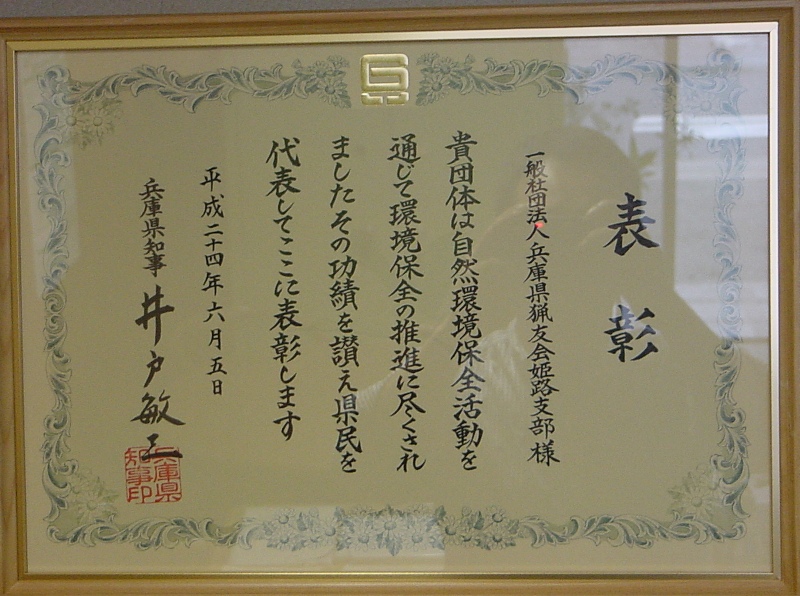 表彰
一般社団法人兵庫県猟友会姫路支部様
貴団体は自然環境保全活動を
通じて環境保全の推進に尽くされ
ましたその功績を讃え県民を
代表してここに表彰します
平成二十四年六月五日
兵庫県知事 井戸敏三
兵庫県
知事印